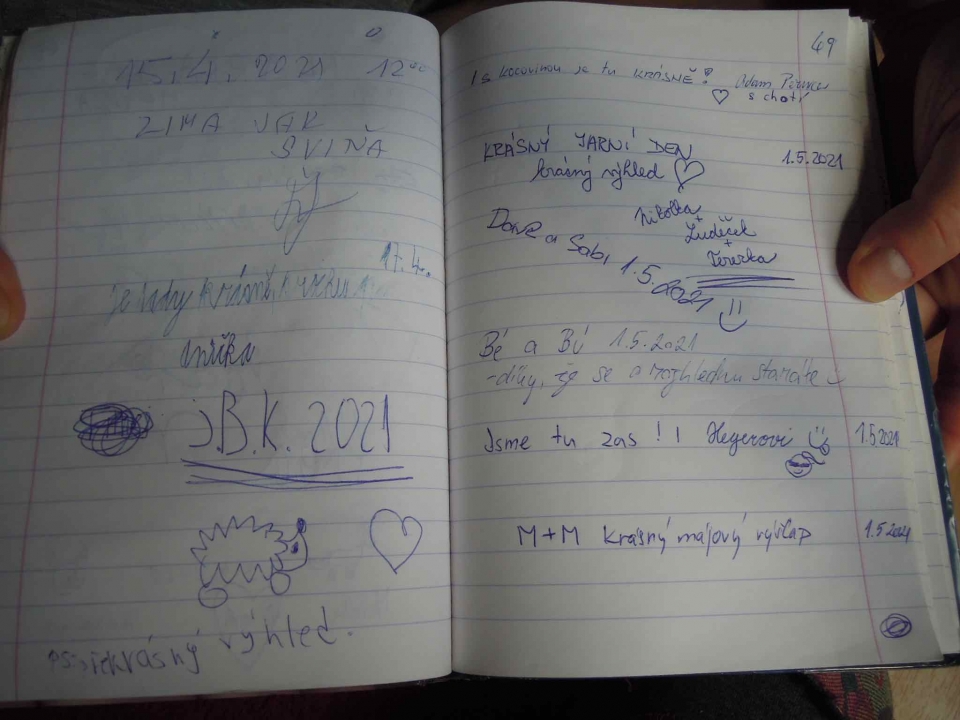 15.4. 2021 12⁰⁰
ZIMA JAK
SVIŇA
17.4.
je tady krásně,
Anička
J.B.K. 2021
PS: krásný výhled.
49
I s kocovinou je tu KRÁSNĚ! Adam
s chotí
KRÁSNÝ JARNÍ DEN 1.5.2021
krásný výhled
Nikolka
+
Luděček
+
Terezka
Dave a Sabi 1.5.2021
Bé a Bú 1.5.2021
-díky, že se o rozhlednu staráte
Jsme tu zas !! Hegerovi 1.5.2021
M+M krásný májový výšlap 1.5.2021